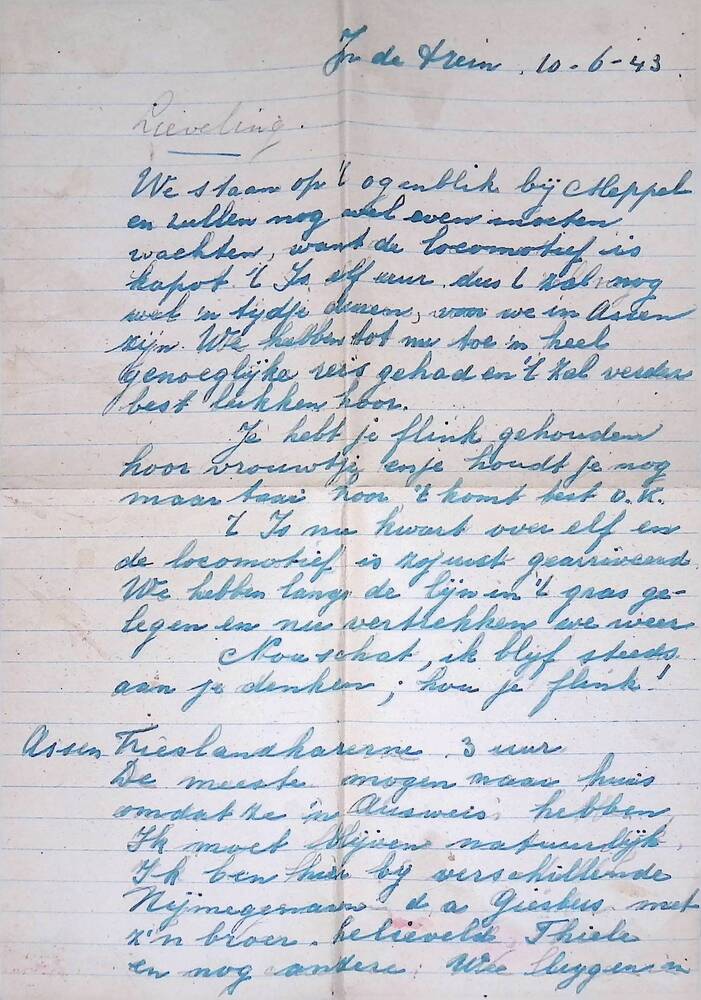 In de trein. 10-6-43.
Lieveling.
We staan op 't ogenblik bij Meppel
en zullen nog wel even moeten
wachten, want de locomotief is
kapot. 't Is elf uur dus 't zal nog
wel 'n tijdje duren, voor we in Assen
zijn. We hebben tot nu toe 'n heel
genoeglijke reis gehad en 't zal verder
best lukken hoor.
Je hebt je flink gehouden
hoor vrouwtje en je houdt je nog
maar taai hoor 't komt best o.k.
't Is nu kwart over elf en
de locomotief is zojuist gearriveerd.
We hebben langs de lijn in 't gras ge-
legen en nu vertrekken we weer
Nou schat, ik blijf steeds
aan je denken; hou je flink!
Assen Frieslandkazerne 3 uur
De meeste mogen naar huis
omdat ze 'n Ausweis hebben,
Ik moet blijven natuurlijk.
Ik ben hier bij verschillende
Nijmegenaars d a Giesbers met
z'n broer. Thiele
en nog andere. We liggen in